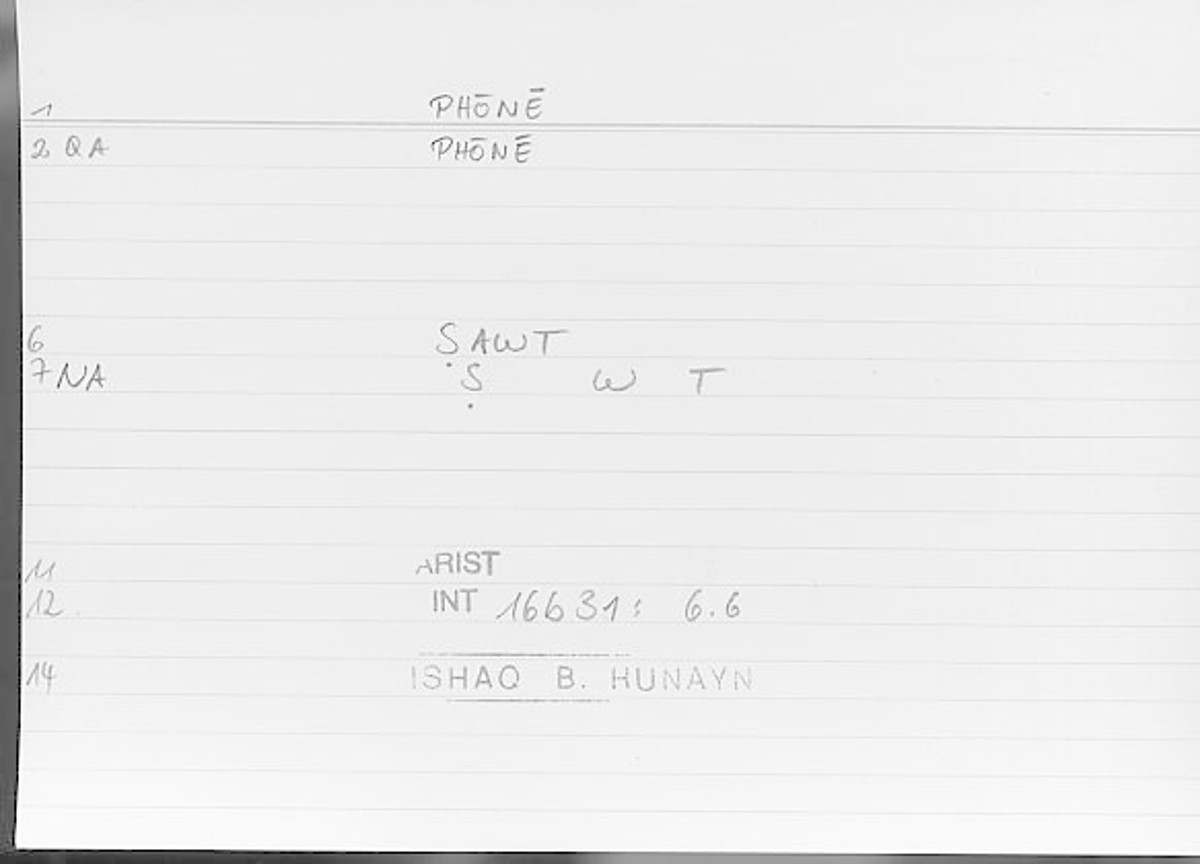 1 PHŌNĒ
2 QA PHŌNĒ
6 ṢAWT
7 NA Ṣ W T
11 ARIST
12 INT 16b31: 6.6
14 ISHAQ B. HUNAYN